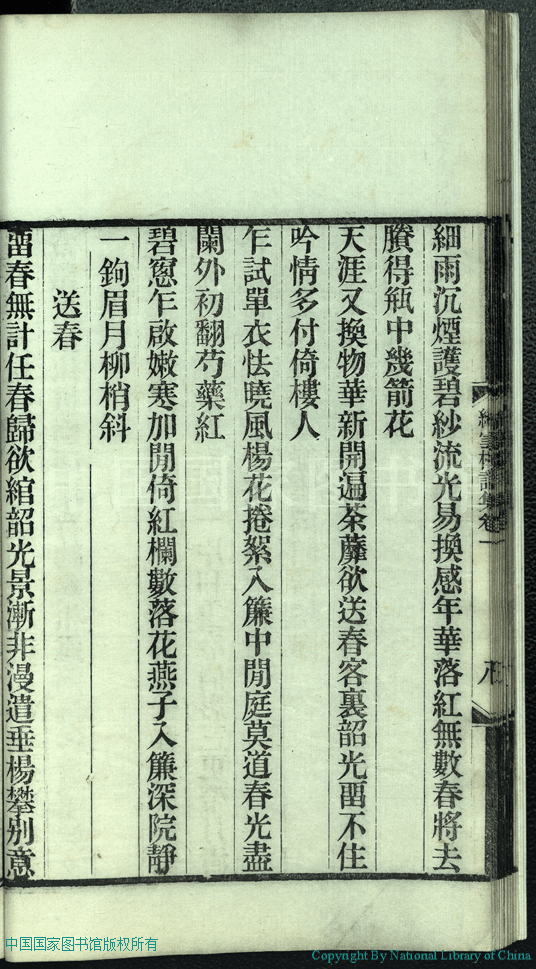 細雨沉煙護碧紗流光易換感年華落紅無數春將去
賸得瓶中幾箭花
天涯又換物華新開遍荼蘼欲送春客裏韶光畱不住
吟情多付倚樓人
乍試單衣怯曉風楊花捲絮入簾中閒庭莫道春光盡
闌外初翻芍藥紅
碧窻乍啟嫩寒加閒倚紅欄數落花燕子入簾深院靜
一鉤眉月柳梢斜
送春
畱春無計任春歸欲綰韶光景漸非漫遣垂楊攀別意
中国国家图书馆版权所有
Copyright By National Library of China